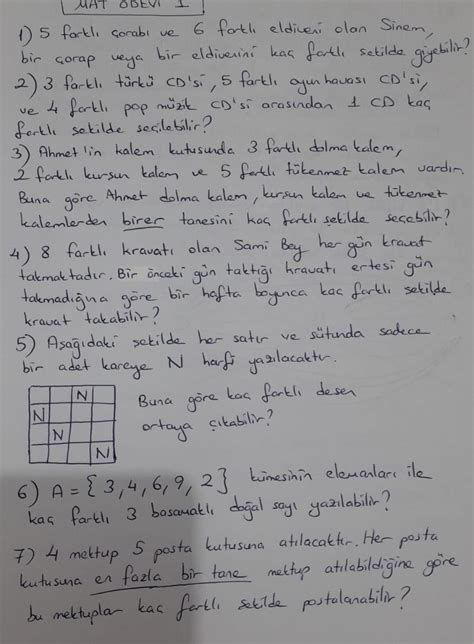 MAT ÖDEVİ 1
1) 5 farklı çorabı ve 6 farklı eldiveni olan Sinem,
bir çorap veya bir eldivenini kaç farklı şekilde giyebilir?
2) 3 farklı türkü CD'si, 5 farklı oyun havası CD'si,
ve 4 farklı pop müzik CD'si arasından 1 CD kaç
farklı şekilde seçilebilir?
3) Ahmet'in kalem kutusunda 3 farklı dolma kalem,
2 farklı kurşun kalem ve 5 farklı tükenmez kalem vardır.
Buna göre Ahmet dolma kalem, kurşun kalem ve tükenmez
kalemlerden birer tanesini kaç farklı şekilde seçebilir?
4) 8 farklı kravatı olan Sami Bey her gün kravat
takmaktadır. Bir önceki gün taktığı kravatı ertesi gün
takmadığına göre bir hafta boyunca kaç farklı şekilde
kravat takabilir?
5) Aşağıdaki şekilde her satır ve sütunda sadece
bir adet kareye N harfi yazılacaktır.
N
N
N
N
Buna göre kaç farklı desen
ortaya çıkabilir?
6) A = {3, 4, 6, 9, 2} kümesinin elemanları ile
kaç farklı 3 basamaklı doğal sayı yazılabilir?
7) 4 mektup 5 posta kutusuna atılacaktır. Her posta
kutusuna en fazla bir tane mektup atılabildiğine göre
bu mektuplar kaç farklı şekilde postalanabilir?